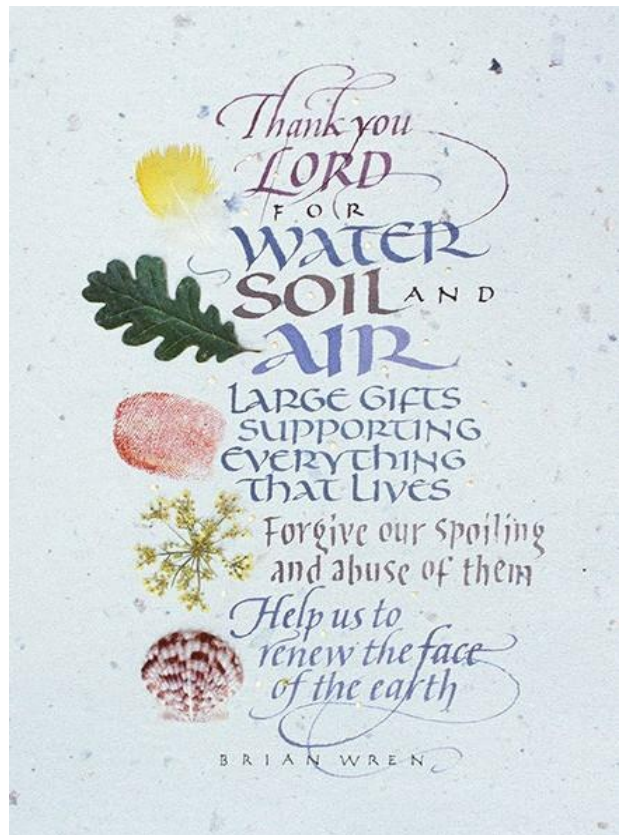 Thank you
LORD
FOR
WATER
SOIL AND
AIR
LARGE GIFTS
SUPPORTING
EVERYTHING
THAT LIVES
Forgive our spoiling
and abuse of them
Help us to
renew the face
of the earth
BRIAN WREN